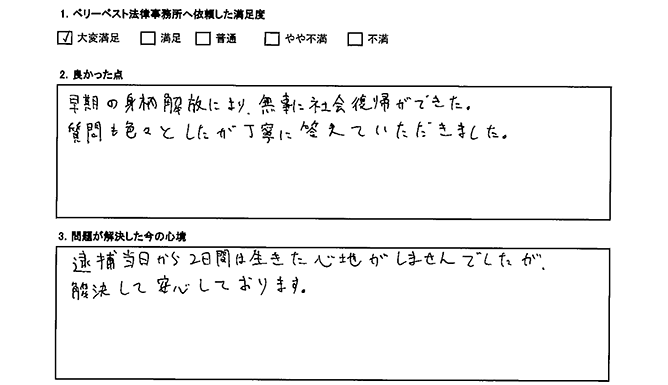 1. ベリーベスト法律事務所へ依頼した満足度
☑ 大変満足 □ 満足 □ 普通 □ やや不満 □ 不満
2. 良かった点
早期の身柄解放により、無事に社会復帰ができた。
質問も色々としたが丁寧に答えていただきました。
3. 問題が解決した今の心境
逮捕当日から2日間は生きた心地がしませんでしたが、
解決して安心しております。